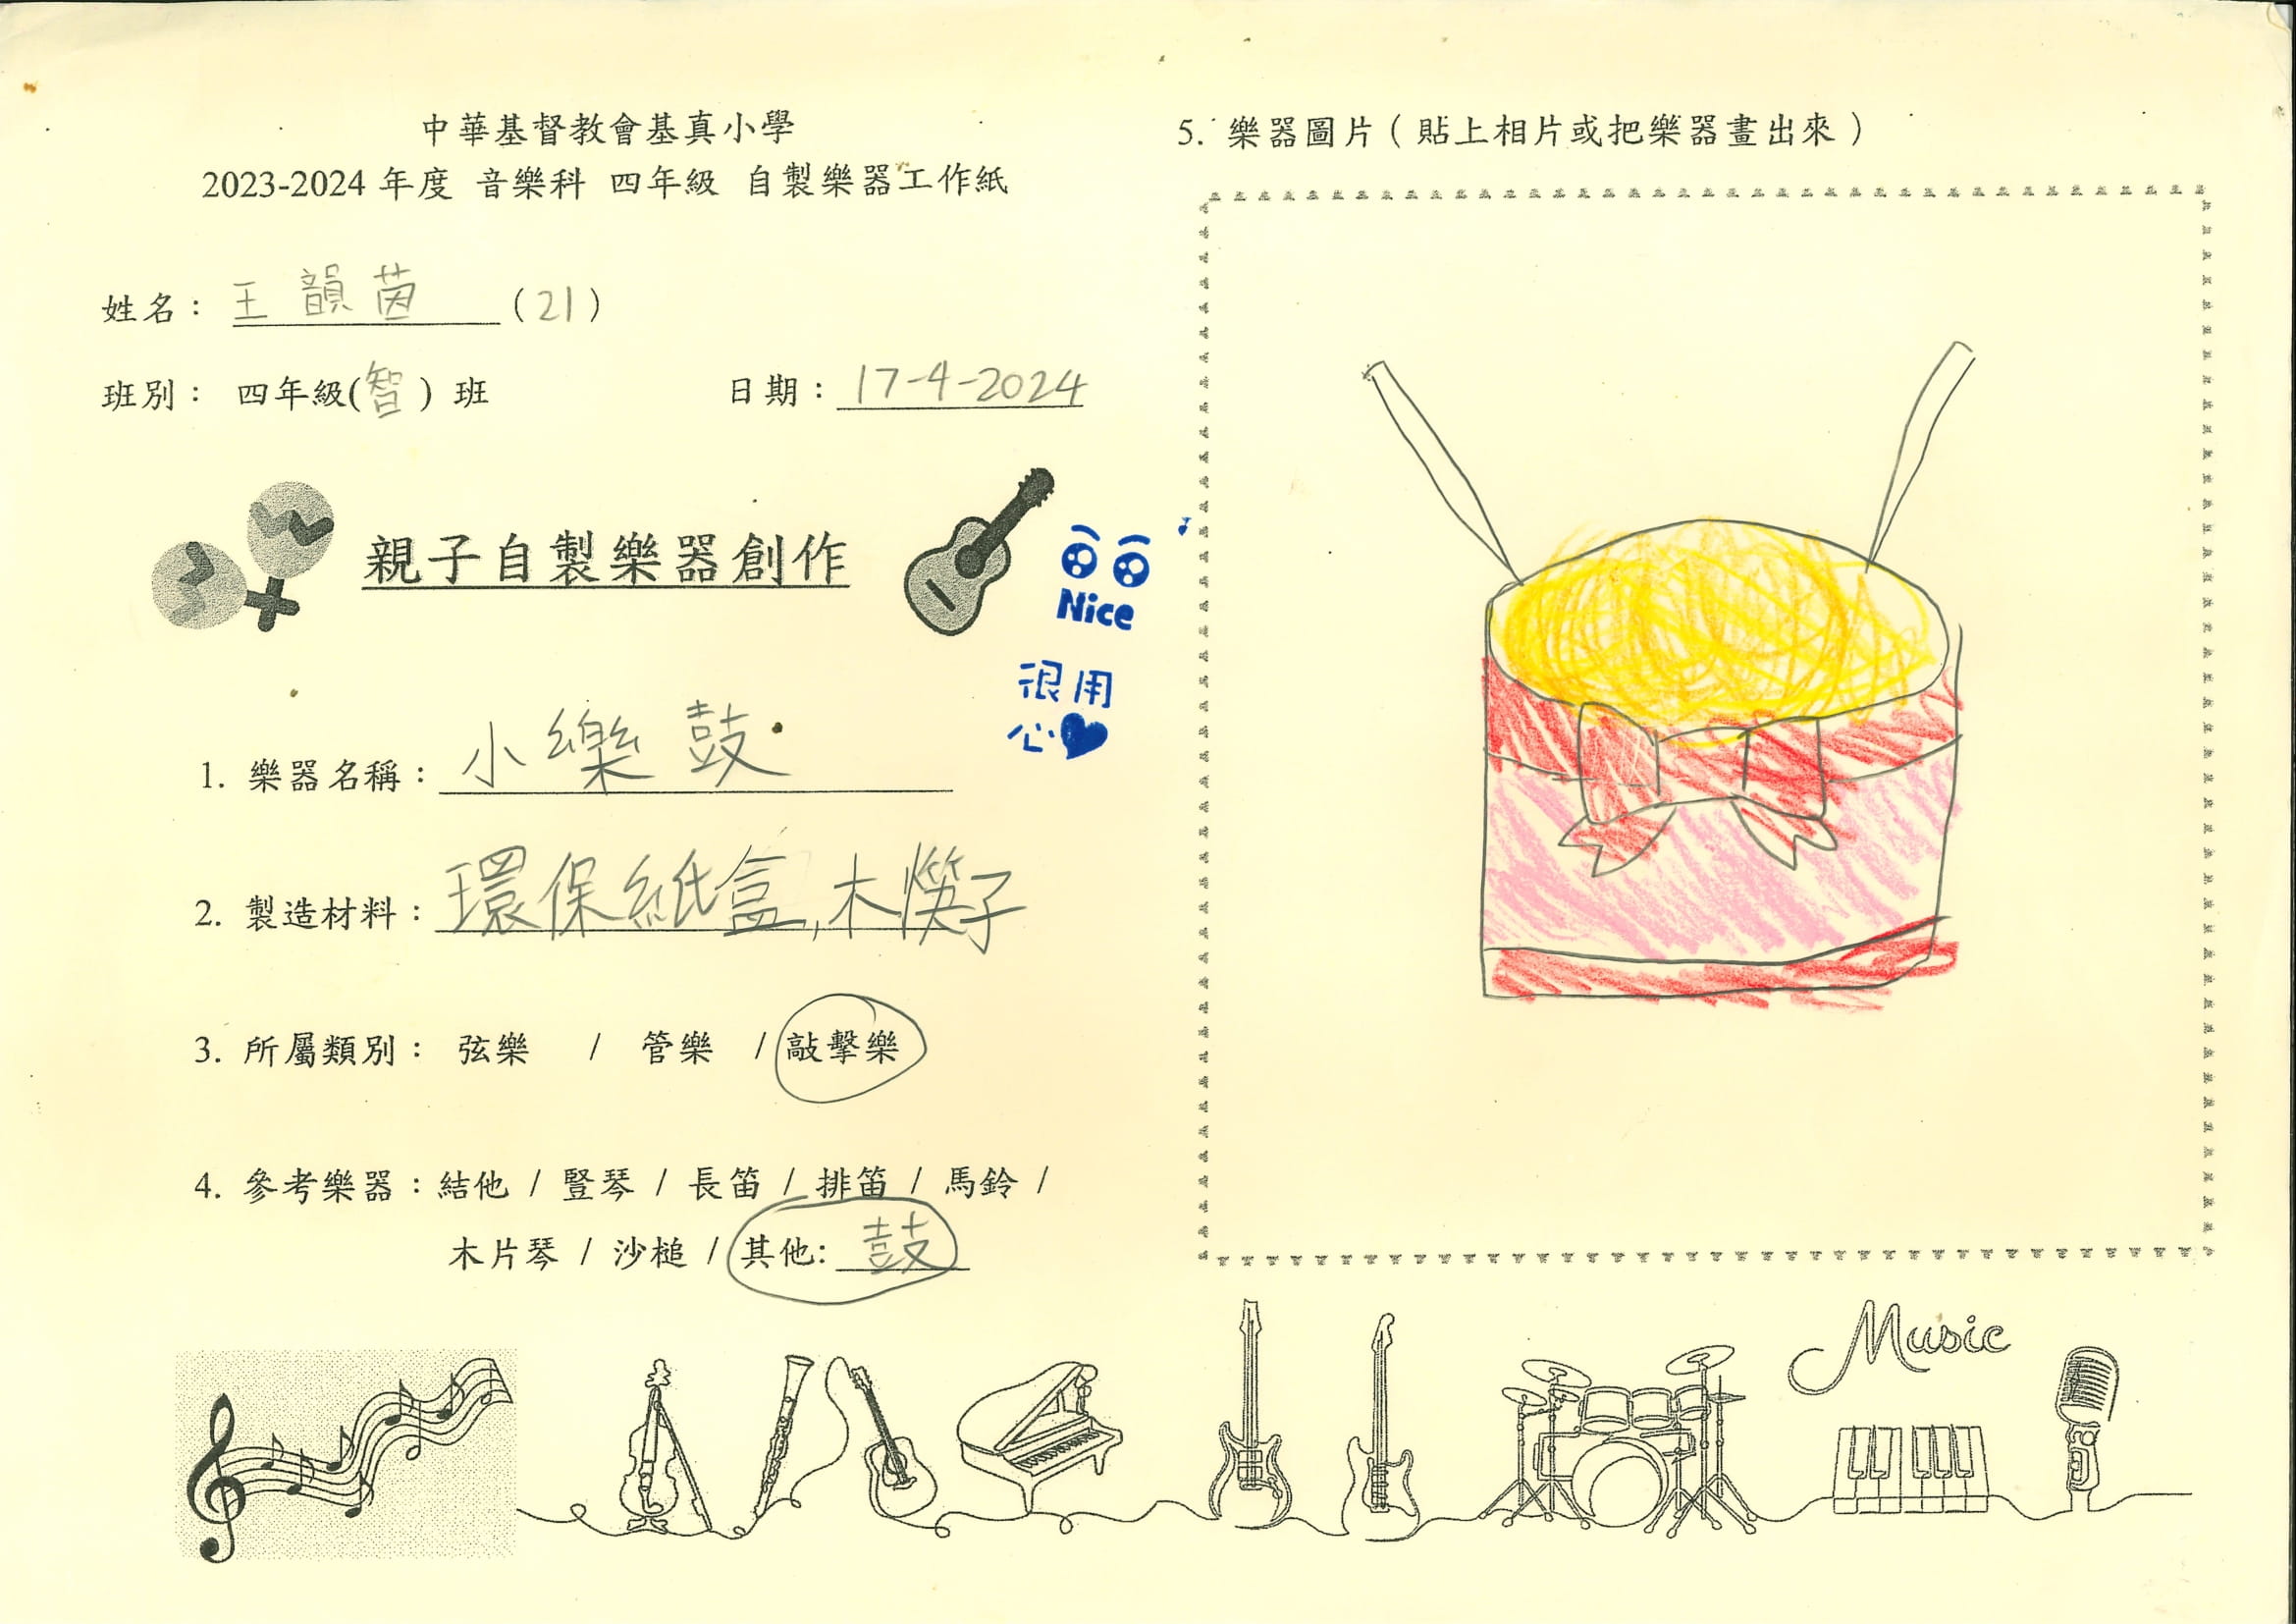 中華基督教會基真小學
2023-2024 年度 音樂科 四年級 自製樂器工作紙
姓名： 王韻茵 (21)
班別： 四年級(智) 班 日期：17-4-2024
親子自製樂器創作
Nice
很用
心
1. 樂器名稱：小樂鼓
2. 製造材料：環保紙盒,木筷子
3. 所屬類別： 弦樂 / 管樂 / 敲擊樂
4. 參考樂器：結他 / 豎琴 / 長笛 / 排笛 / 馬鈴 /
木片琴 / 沙槌 / 其他: 鼓
5. 樂器圖片（貼上相片或把樂器畫出來）
Music